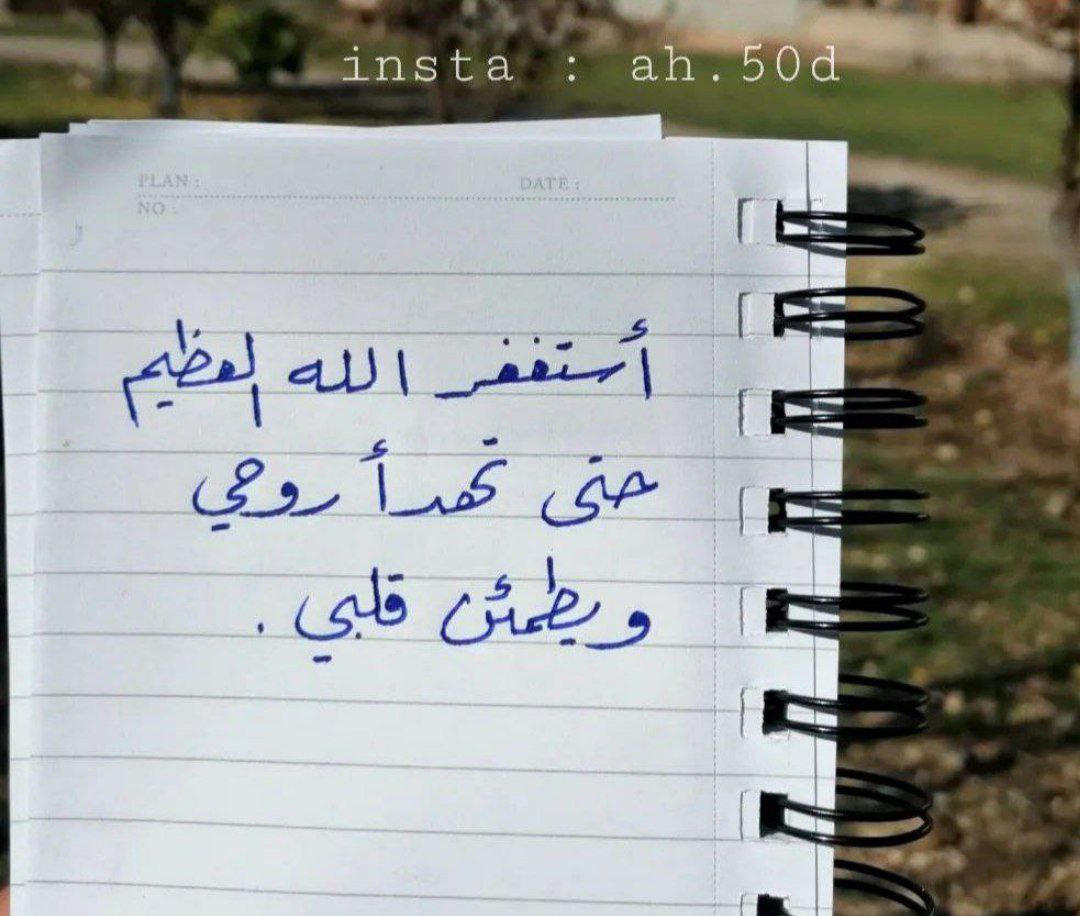 insta : ah.50d
PLAN :
DATE :
NO :
أستغفر الله العظيم
حتى تهدأ روحي
ويطمئن قلبي .